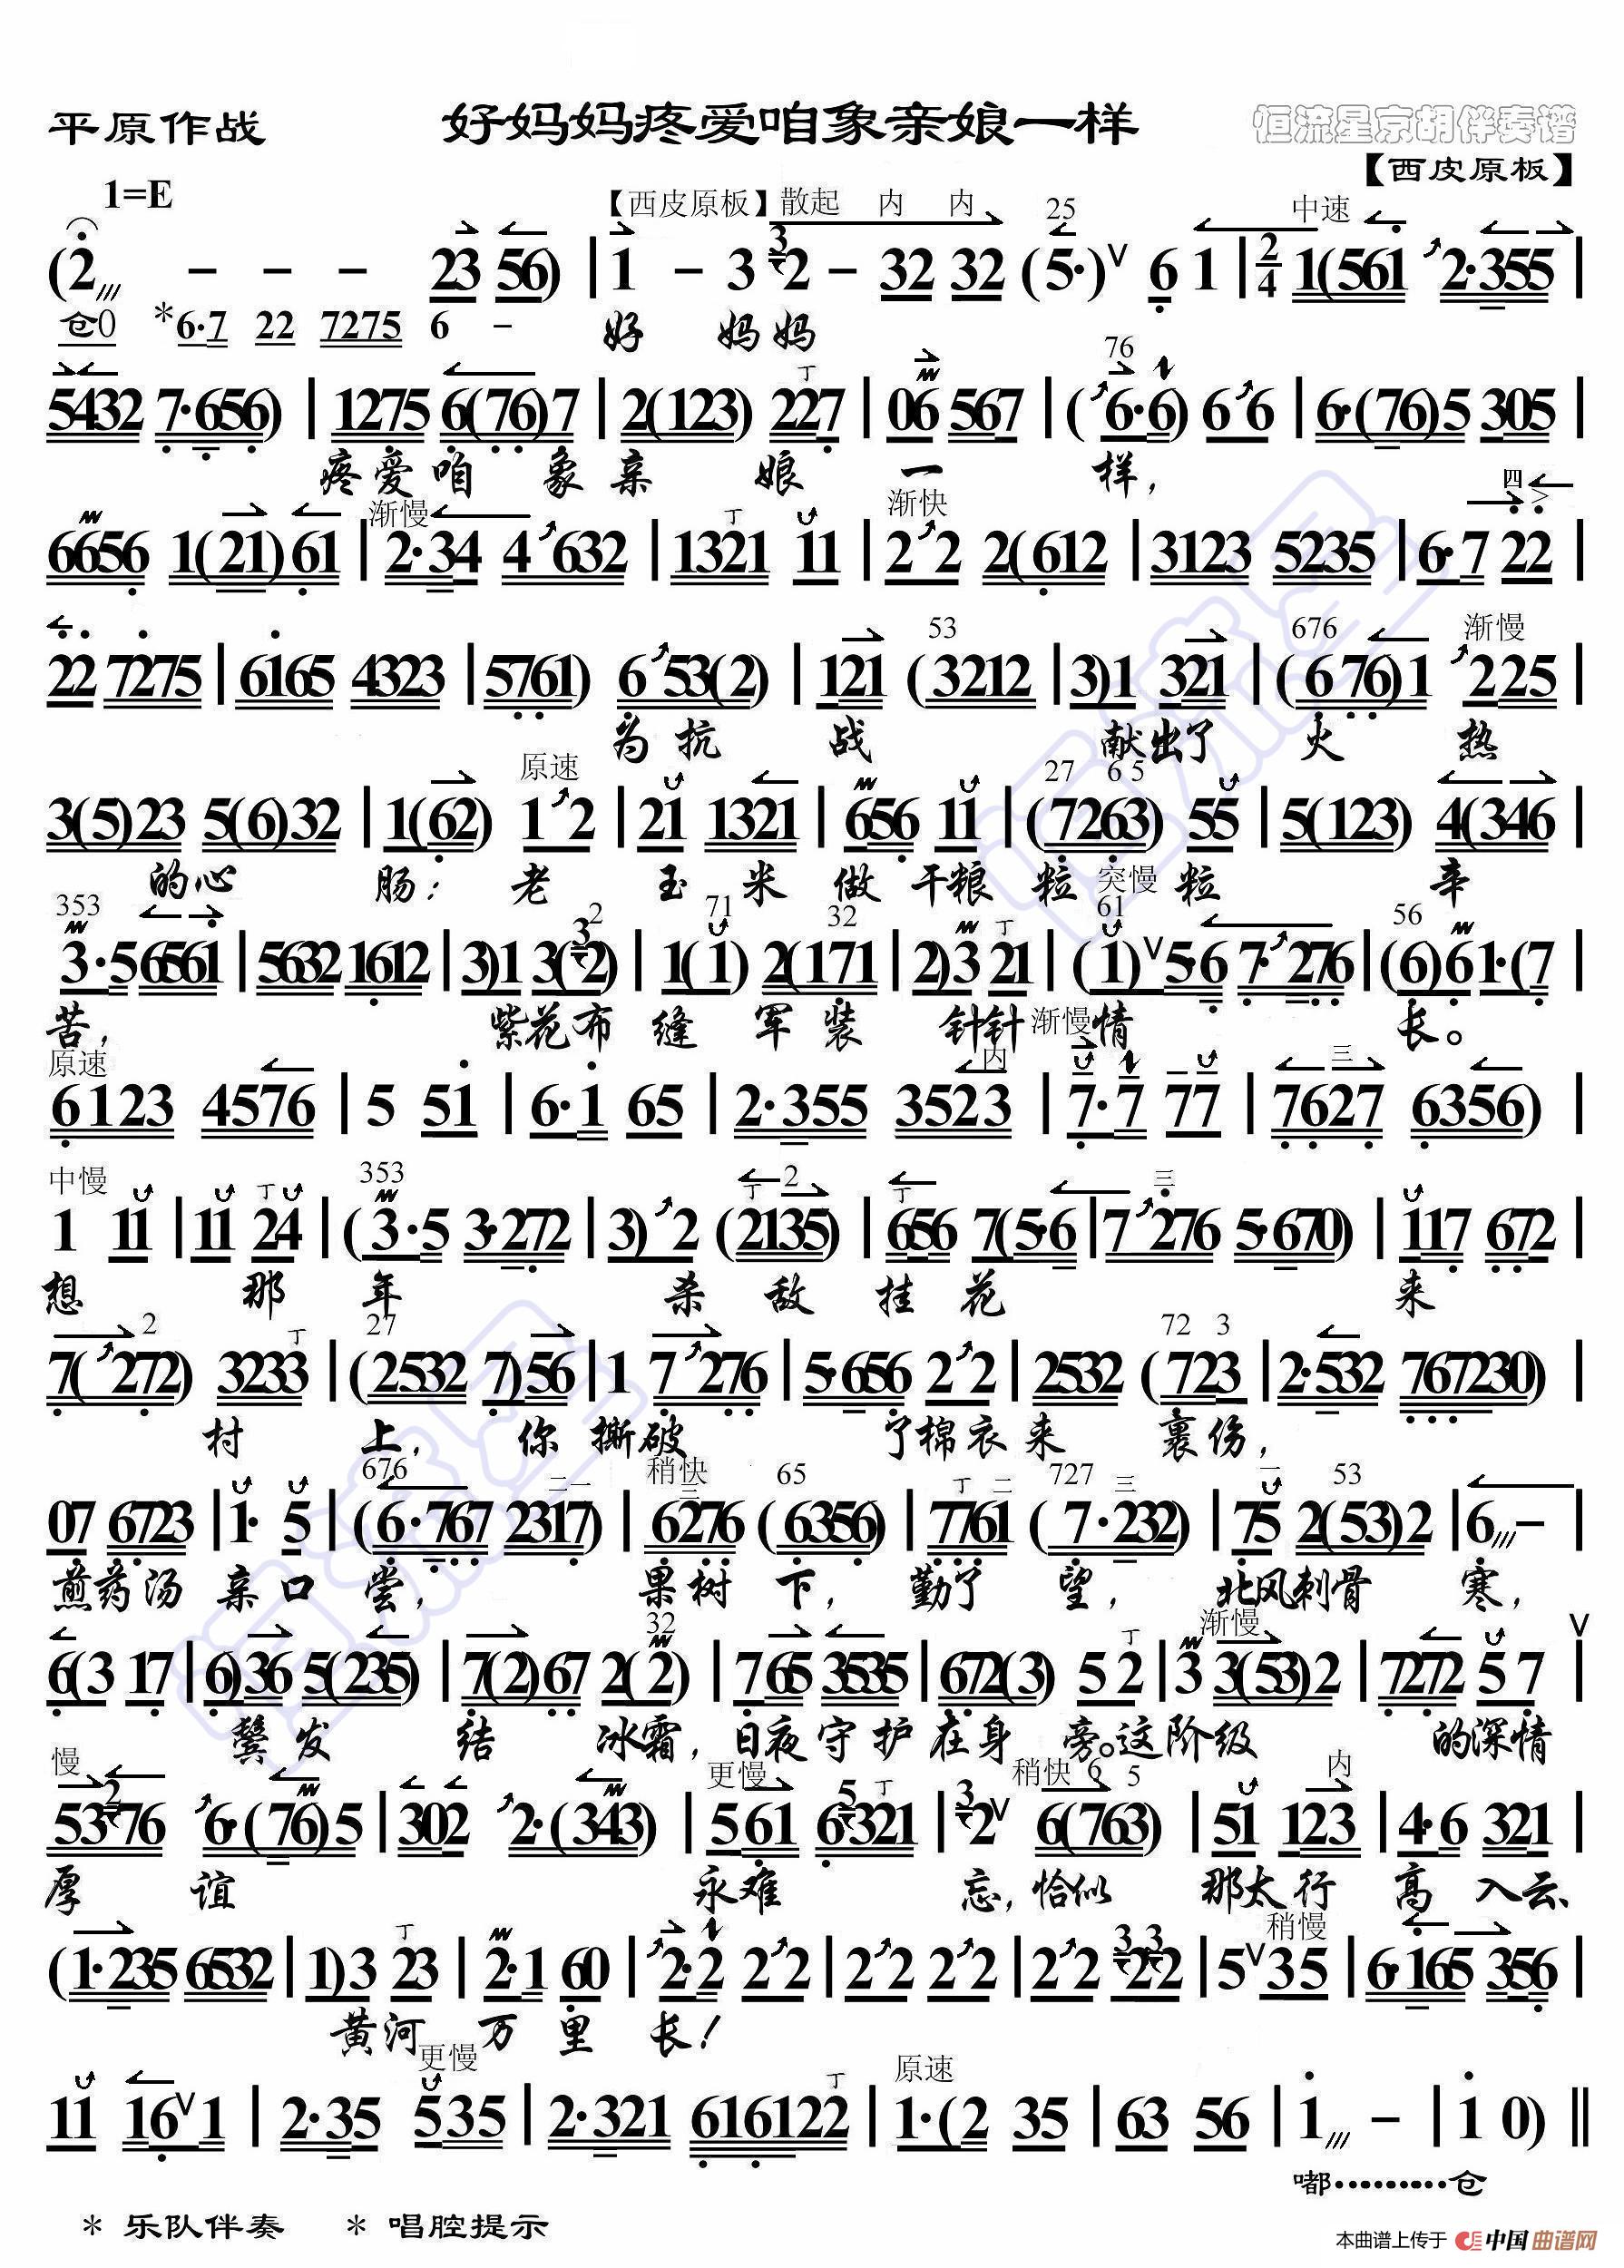 平原作战 好妈妈疼爱咱象亲娘一样 恒流星京胡伴奏谱
【西皮原板】
1=E 【西皮原板】散起 内 内 25 中速
(2 - - - 23 56) | 1 - 3 3 2 - 32 32 (5·) V 6 1 | 2/4 1(561 2·355 |
仓0 *6·7 22 7275 6 - 好 妈妈
76
5432 7·656) | 1275 6(76)7 | 2(123) 227 | 06 567 | (6·6) 6 6 | 6·(76)5 305 |
疼爱咱 象亲 娘 一 样，
渐慢 渐快 四
6656 1(21)61 | 2·34 4 632 | 1321 11 | 2 2 2(612 | 3123 5235 | 6·7 22 |
53 676 渐慢
22 7275 | 6165 4323 | 5761) 6 53(2) | 121 (3212 | 3)1 321 | (676)1 225 |
为抗 战 献出了 火 热
原速 27 6 5
3(5)23 5(6)32 | 1(62) 1 2 | 21 1321 | 656 11 | (7263) 55 | 5(123) 4(346 |
的心 肠：老 玉米做干粮粒 突慢 粒 辛
353 2 71 32 61 56
3·5 6561 | 5632 1612 | 3)1 3(3 2) | 1(1) 2(171 | 2)3 21 | (1) V 5·6 7·276 | (6)61·(7 |
苦， 紫花布缝军装 针针 渐慢 情 长。
原速 内 三
6123 4576 | 5 51 | 6·1 65 | 2·355 3523 | 7·7 77 | 7627 6356) |
中慢 353 丁 2 三
1 11 | 11 24 | (3·5 3·272 | 3) 2 (2135) | 656 7(5·6 | 7 276 5·670) | 117 672 |
想 那年 杀敌挂花 来
2 丁 27 72 3
7(272) 3233 | (2532 7)56 | 1 7 276 | 5·656 2 2 | 2532 (723 | 2·532 767230) |
村 上，你撕破 了棉衣来 裹伤，
676 二一 稍快 三 65 丁 二 727 三 一 53
07 6723 | 1· 5 | (6·767 2317) | 6276 (6356) | 7761 (7·232) | 75 2(53)2 | 6 - |
煎药汤亲口尝， 果树下，勤了望，北风刺骨 寒，
32 丁 渐慢 V
6(3 17 | 6)36 5(235) | 7(2)67 2(2) | 765 3535 | 672(3) 5 2 | 3 3(53)2 | 7272 5 7 |
鬓发 结 冰霜，日夜守护在身 旁。这阶级 的深情
慢 更慢 稍快 6 5 内
53 2 76 6·(76)5 | 302 2·(343) | 561 6·5 321 | 3 2 V 6(763) | 51 123 | 4·6 321 |
厚 谊 永难 忘，恰似 那太行 高 入云，
丁 稍慢
(1·235 6532 | 1)3 23 | 2·1 60 | 2·2 2 2 | 2 2 2 2 | 2 2 3 2 3 2 | 5 V 35 | 6·165 356 |
黄河 万里 长！
更慢 丁 原速
11 16 V 1 | 2·35 535 | 2·321 616122 | 1·(2 35 | 63 56 | 1 - | 1 0) ‖
嘟………仓
* 乐队伴奏 * 唱腔提示
本曲谱上传于 中国曲谱网